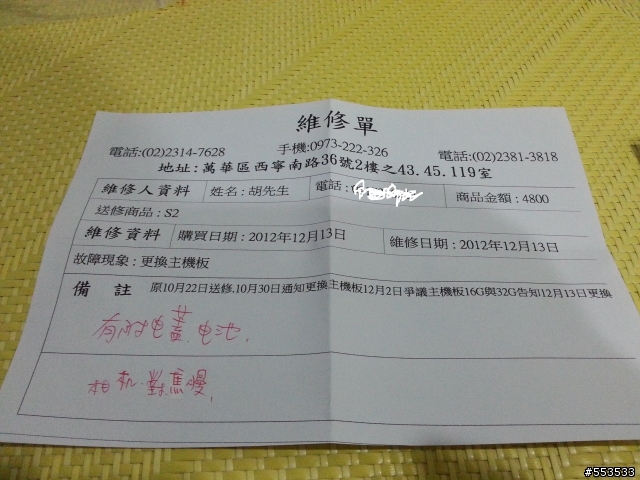 維修單
電話:(02)2314-7628 手機:0973-222-326 電話:(02)2381-3818
地址:萬華區西寧南路36號2樓之43.45.119室
維修人資料 姓名:胡先生 電話:( 商品金額:4800
送修商品:S2
維修資料 購買日期:2012年12月13日 維修日期:2012年12月13日
故障現象:更換主機板
備 註 原10月22日送修.10月30日通知更換主機板12月2日爭議主機板16G與32G告知12月13日更換
有附电蓋.电池.
相机.對焦慢.
#553533